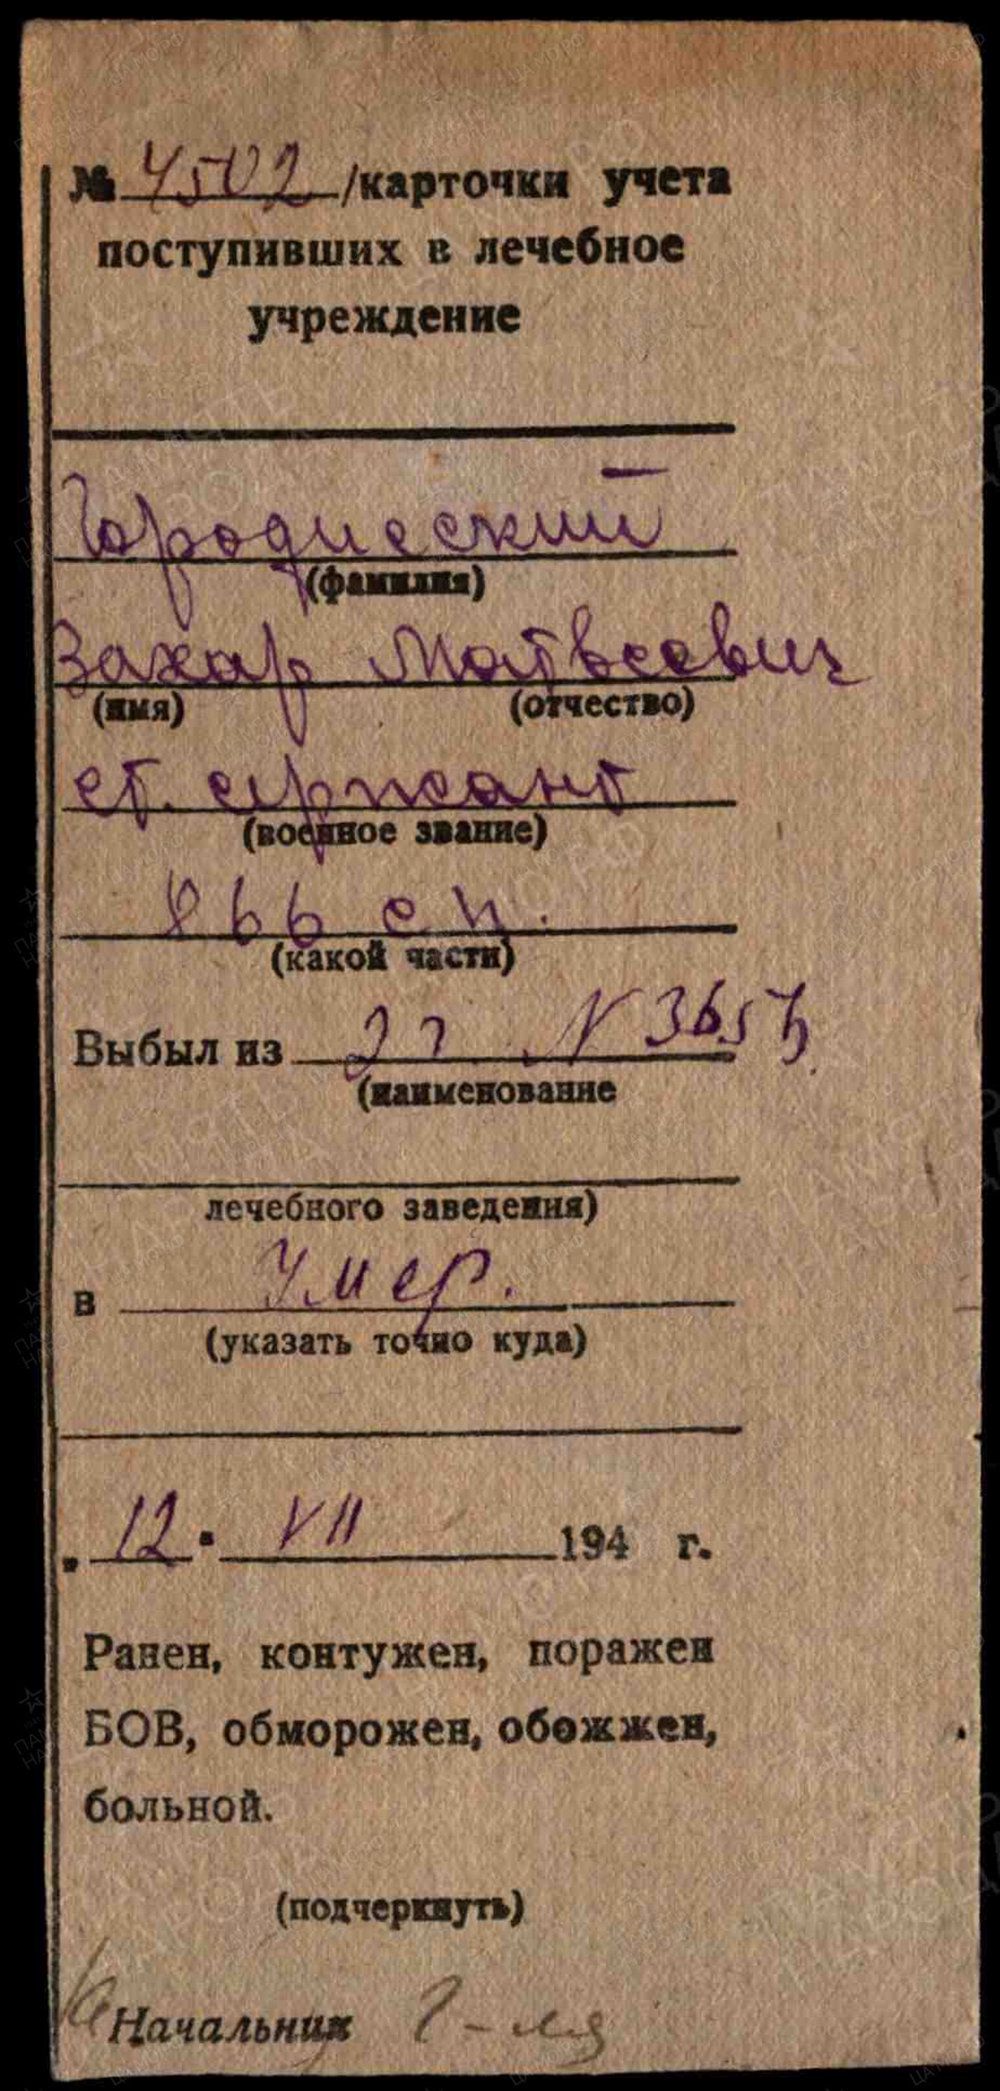 № 4502 /карточки учета
поступивших в лечебное
учреждение
Городиеский
(фамилия)
Захар Матвеевич
(имя) (отчество)
ст. сержант
(военное звание)
866 сп.
(какой части)
Выбыл из ЭГ N 3657
(наименование
лечебного заведения)
в Умер.
(указать точно куда)
„ 12 " VII 194 г.
Ранен, контужен, поражен
БОВ, обморожен, обожжен,
больной.
(подчеркнуть)
Начальник Г-ля